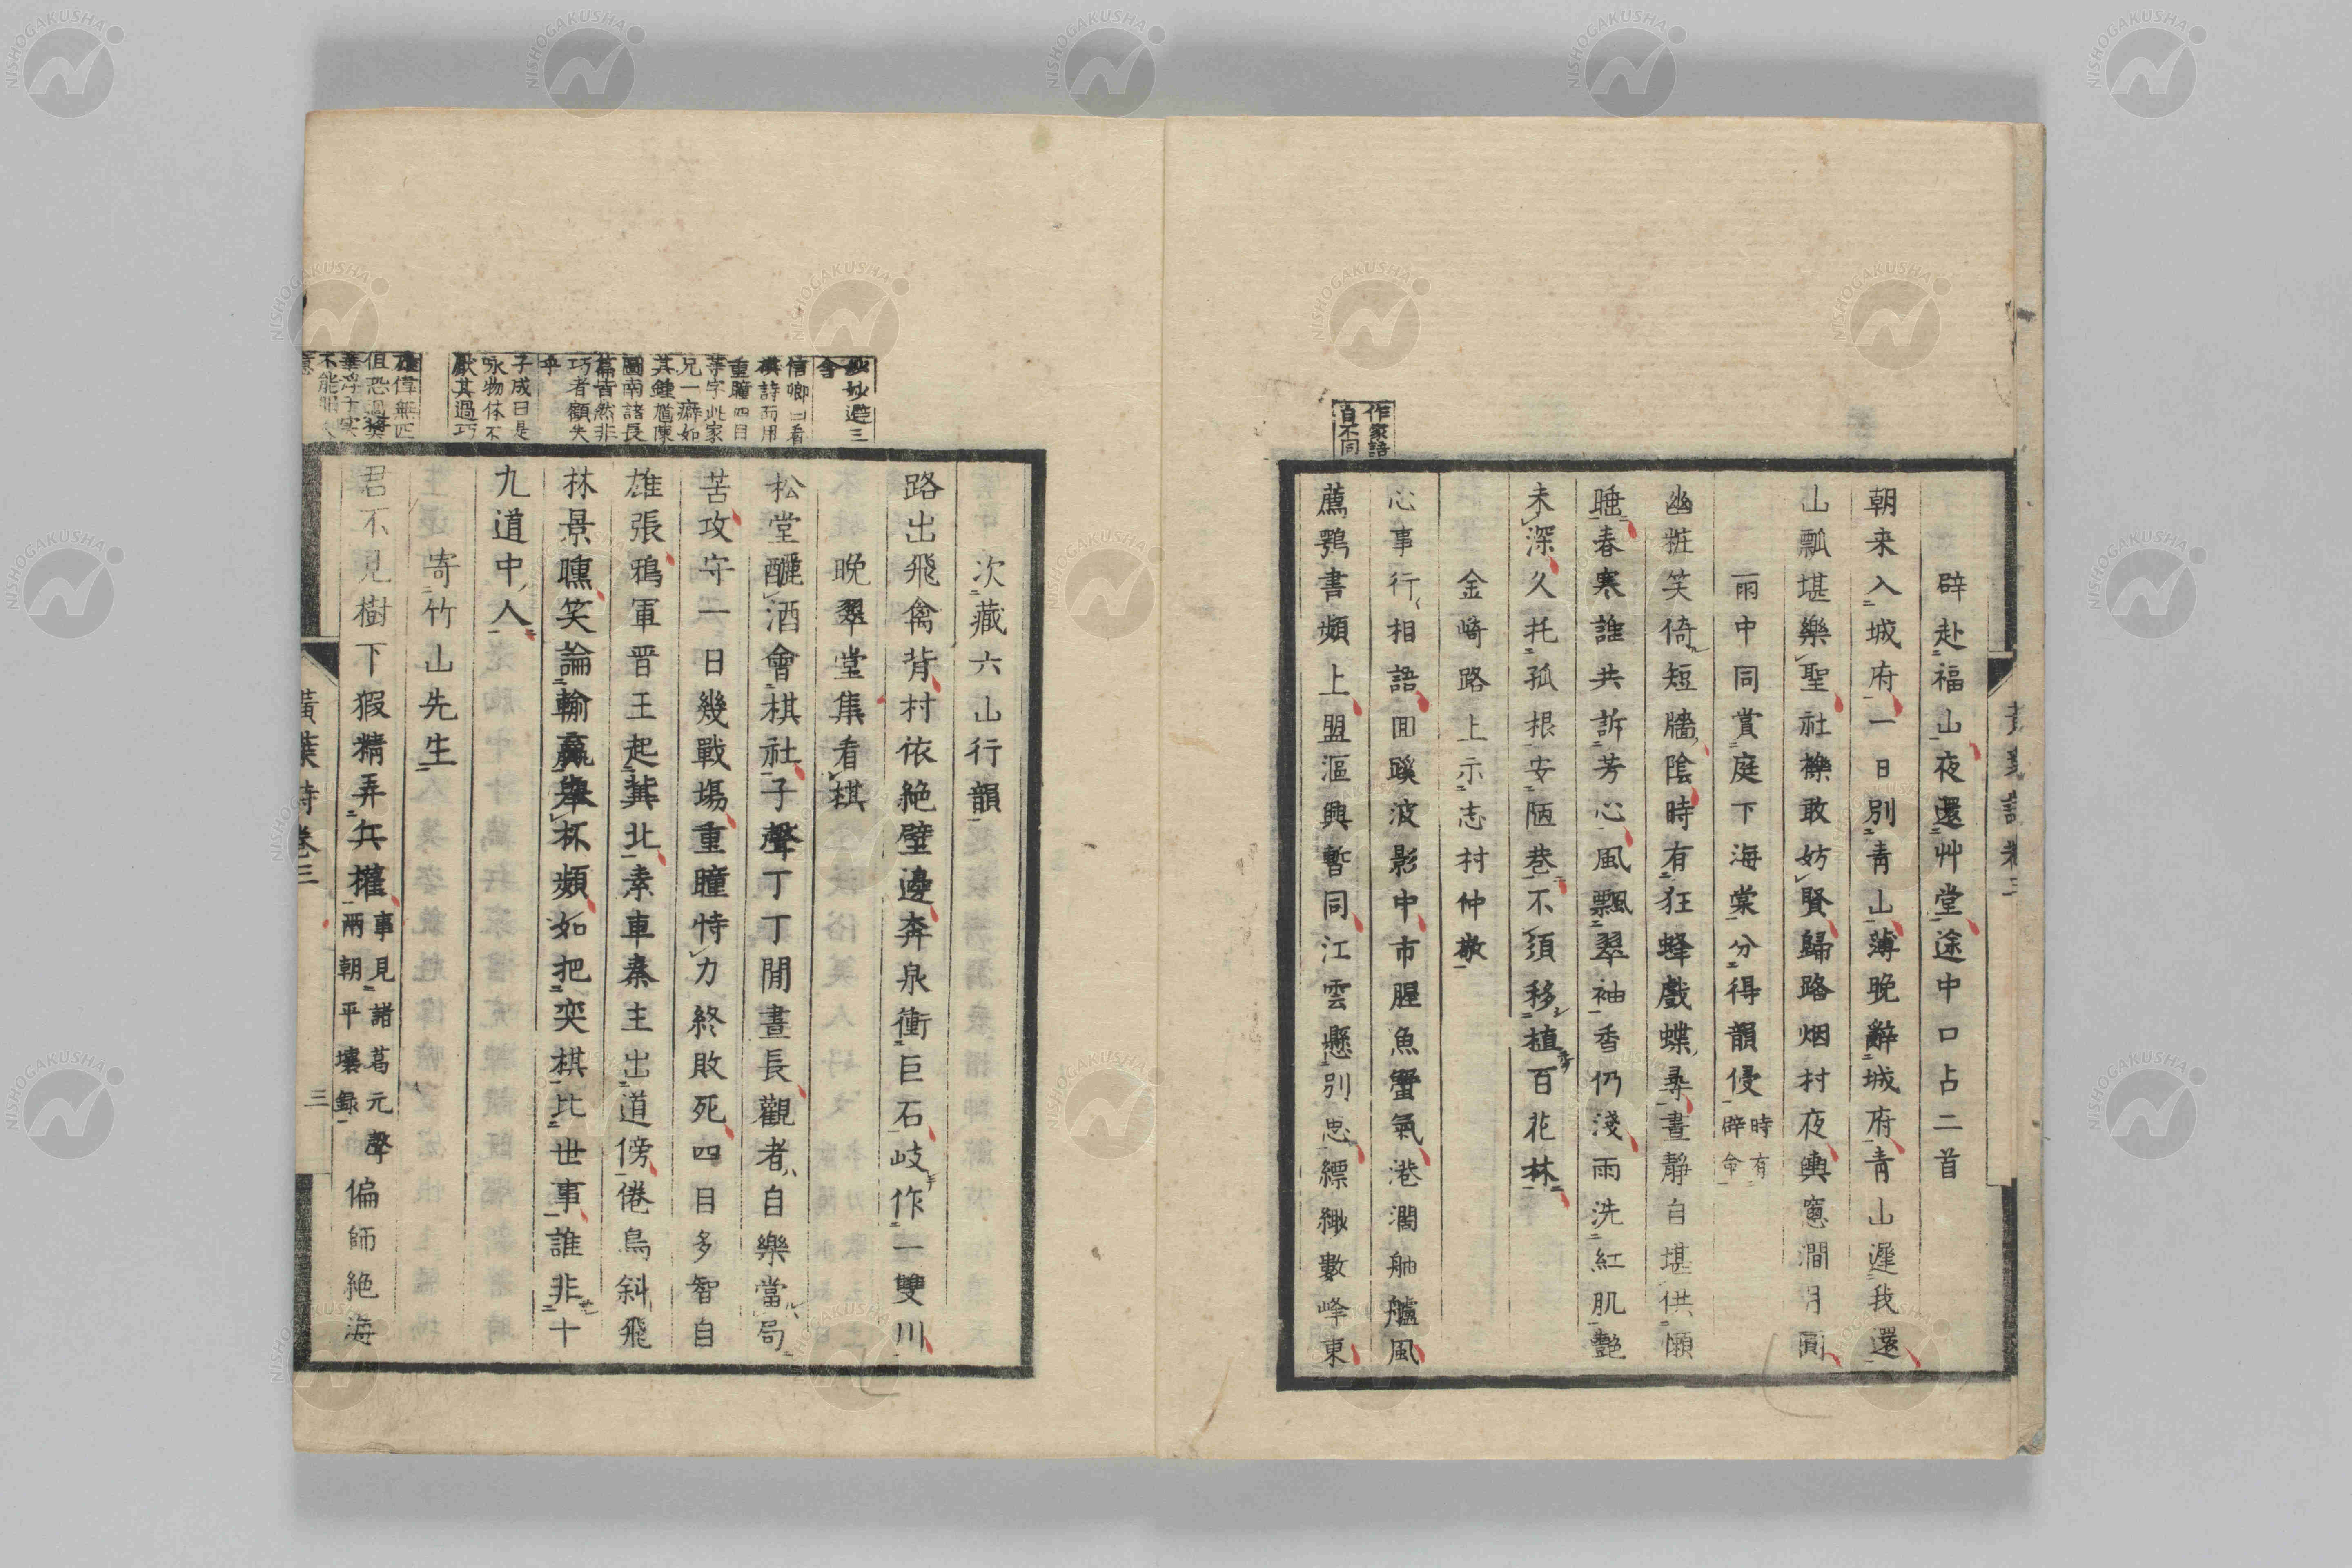 作家語
自不同
辟赴福山夜還艸堂途中口占二首
朝来入城府一日別青山薄晚辭城府青山遲我還
山瓢堪樂聖社襟敢妨賢歸路烟村夜輿窓澗月圓
雨中同賞庭下海棠分得韻侵時有辟命
幽粧笑倚短牆陰時有狂蜂戲蝶尋晝靜自堪供願
睡春寒誰共訴芳心風飄翠袖香仍淺雨洗紅肌艷
未深久托孤根安陋巷不須移植百花林
金崎路上示志村仲敬
心事行相語囬蹊波影中市腥魚蟹氣港濶舳艫風
薦鶚書頻上盟漚興暫同江雲懸別思縹緲數峰東
妙妙避三
舍
信卿曰看
棋詩而用
重瞳四目
等字此家
兄一癖如
其鍾馗陳
圖南諸長
篇皆然非
巧者顧失
乎
子成曰是
咏物体不
厭其過巧
雄偉無匹
次藏六山行韻
路出飛禽背村依絶壁邊奔泉衝巨石岐作一雙川
晚翠堂集看棋
松堂釃酒會棋社子聲丁丁閒晝長觀者自樂當局
苦攻守一日幾戰場重瞳恃力終敗死四目多智自
雄張鴉軍晋王起冀北素車秦主出道傍倦鳥斜飛
林景曛笑論輸贏舉杯頻如把奕棋比世事誰非十
九道中人
寄竹山先生
君不見樹下猳精弄兵權事見諸葛元聲兩朝平壤録偏師絶海
黄葉詩卷三
三
NISHOGAKUSHA